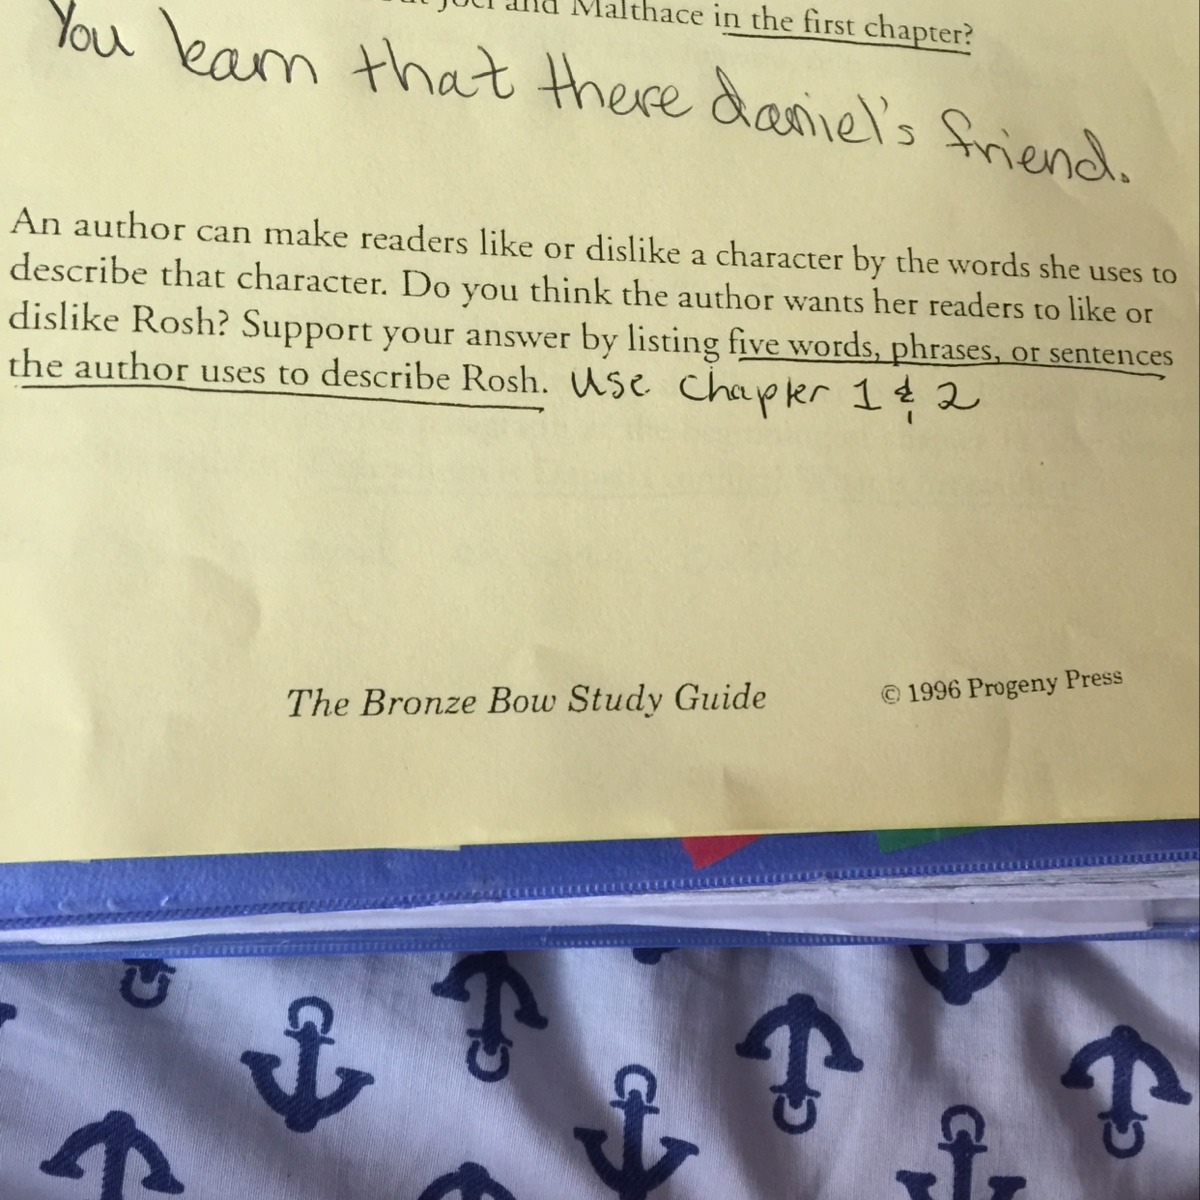 Joel and Malthace in the first chapter?
You learn that there daniel's friend.
An author can make readers like or dislike a character by the words she uses to
describe that character. Do you think the author wants her readers to like or
dislike Rosh? Support your answer by listing five words, phrases, or sentences
the author uses to describe Rosh. Use Chapter 1 & 2
The Bronze Bow Study Guide © 1996 Progeny Press